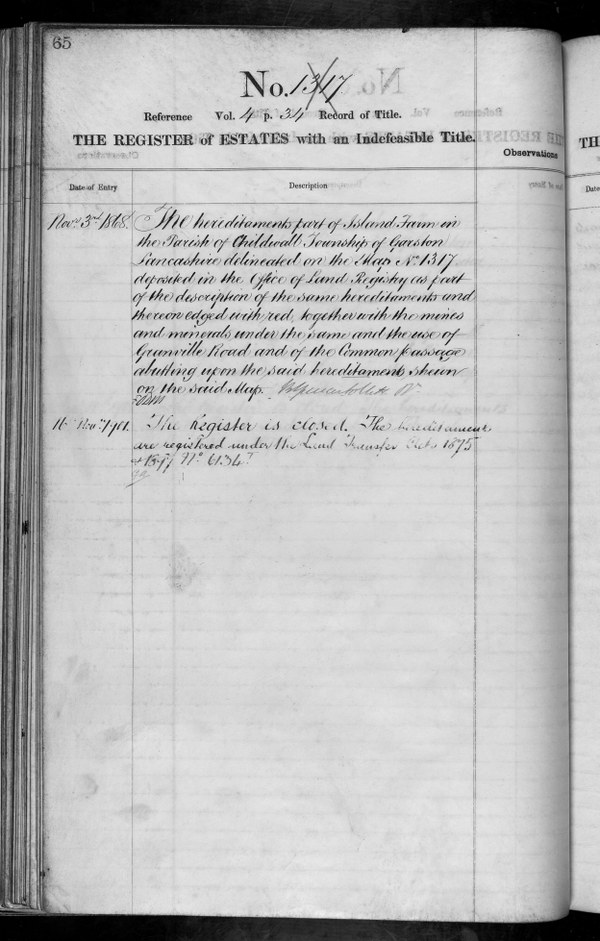 65
No. 1317
Reference Vol. 4 p. 34 Record of Title.
THE REGISTER of ESTATES with an Indefeasible Title.
Observations
Date of Entry
Description
Novr. 3rd 1868.
The hereditaments part of Island Farm in
the Parish of Childwall Township of Garston
Lancashire delineated on the Map No. 1317
deposited in the Office of Land Registry as part
of the description of the same hereditaments and
thereon edged with red, together with the mines
and minerals under the same and the use of
Granville Road and of the Common Passage
abutting upon the said hereditaments shewn
on the said Map.
16 Novr. 1901.
The Register is closed. The hereditaments
are registered under the Land Transfer Acts 1875
& 1897 No. 6134
TH
Date